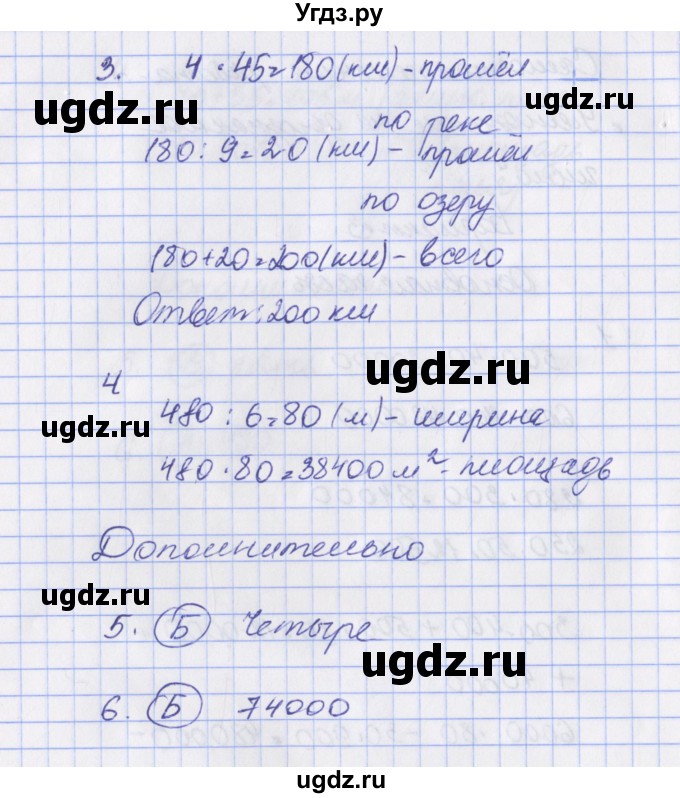 Угдз.ру
3. 4 · 45 = 180 (км) - прошёл
ugdz.ru
ugdz.ru
по реке
180 : 9 = 20 (км) - прошёл
по озеру
180 + 20 = 200 (км) - всего
Ответ: 200 км
ugdz.ru
4
480 : 6 = 80 (м) - ширина
ugdz.ru
480 · 80 = 38400 м² - площадь
Дополнительно
ugdz.ru
5. Б Четыре
ugdz.ru
6. Б 74000
ugdz.ru